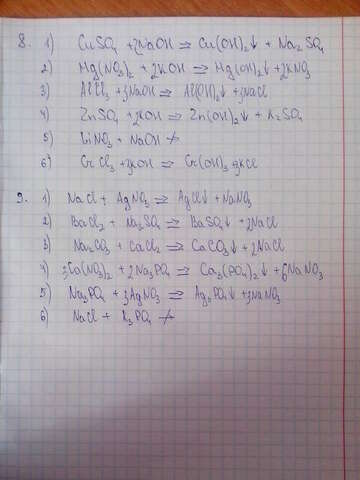 8. 1) CuSO₄ + 2NaOH ⇒ Cu(OH)₂↓ + Na₂SO₄
2) Mg(NO₃)₂ + 2KOH ⇒ Mg(OH)₂↓ + 2KNO₃
3) AlCl₃ + 3NaOH ⇒ Al(OH)₃↓ + 3NaCl
4) ZnSO₄ + 2KOH ⇒ Zn(OH)₂↓ + K₂SO₄
5) LiNO₃ + NaOH ≠
6) CrCl₃ + 3KOH ⇒ Cr(OH)₃ + 3KCl
9. 1) NaCl + AgNO₃ ⇒ AgCl↓ + NaNO₃
2) BaCl₂ + Na₂SO₄ ⇒ BaSO₄↓ + 2NaCl
3) Na₂CO₃ + CaCl₂ ⇒ CaCO₃↓ + 2NaCl
4) 3Ca(NO₃)₂ + 2Na₃PO₄ ⇒ Ca₃(PO₄)₂↓ + 6NaNO₃
5) Na₃PO₄ + 3AgNO₃ ⇒ Ag₃PO₄↓ + 3NaNO₃
6) NaCl + K₃PO₄ ≠